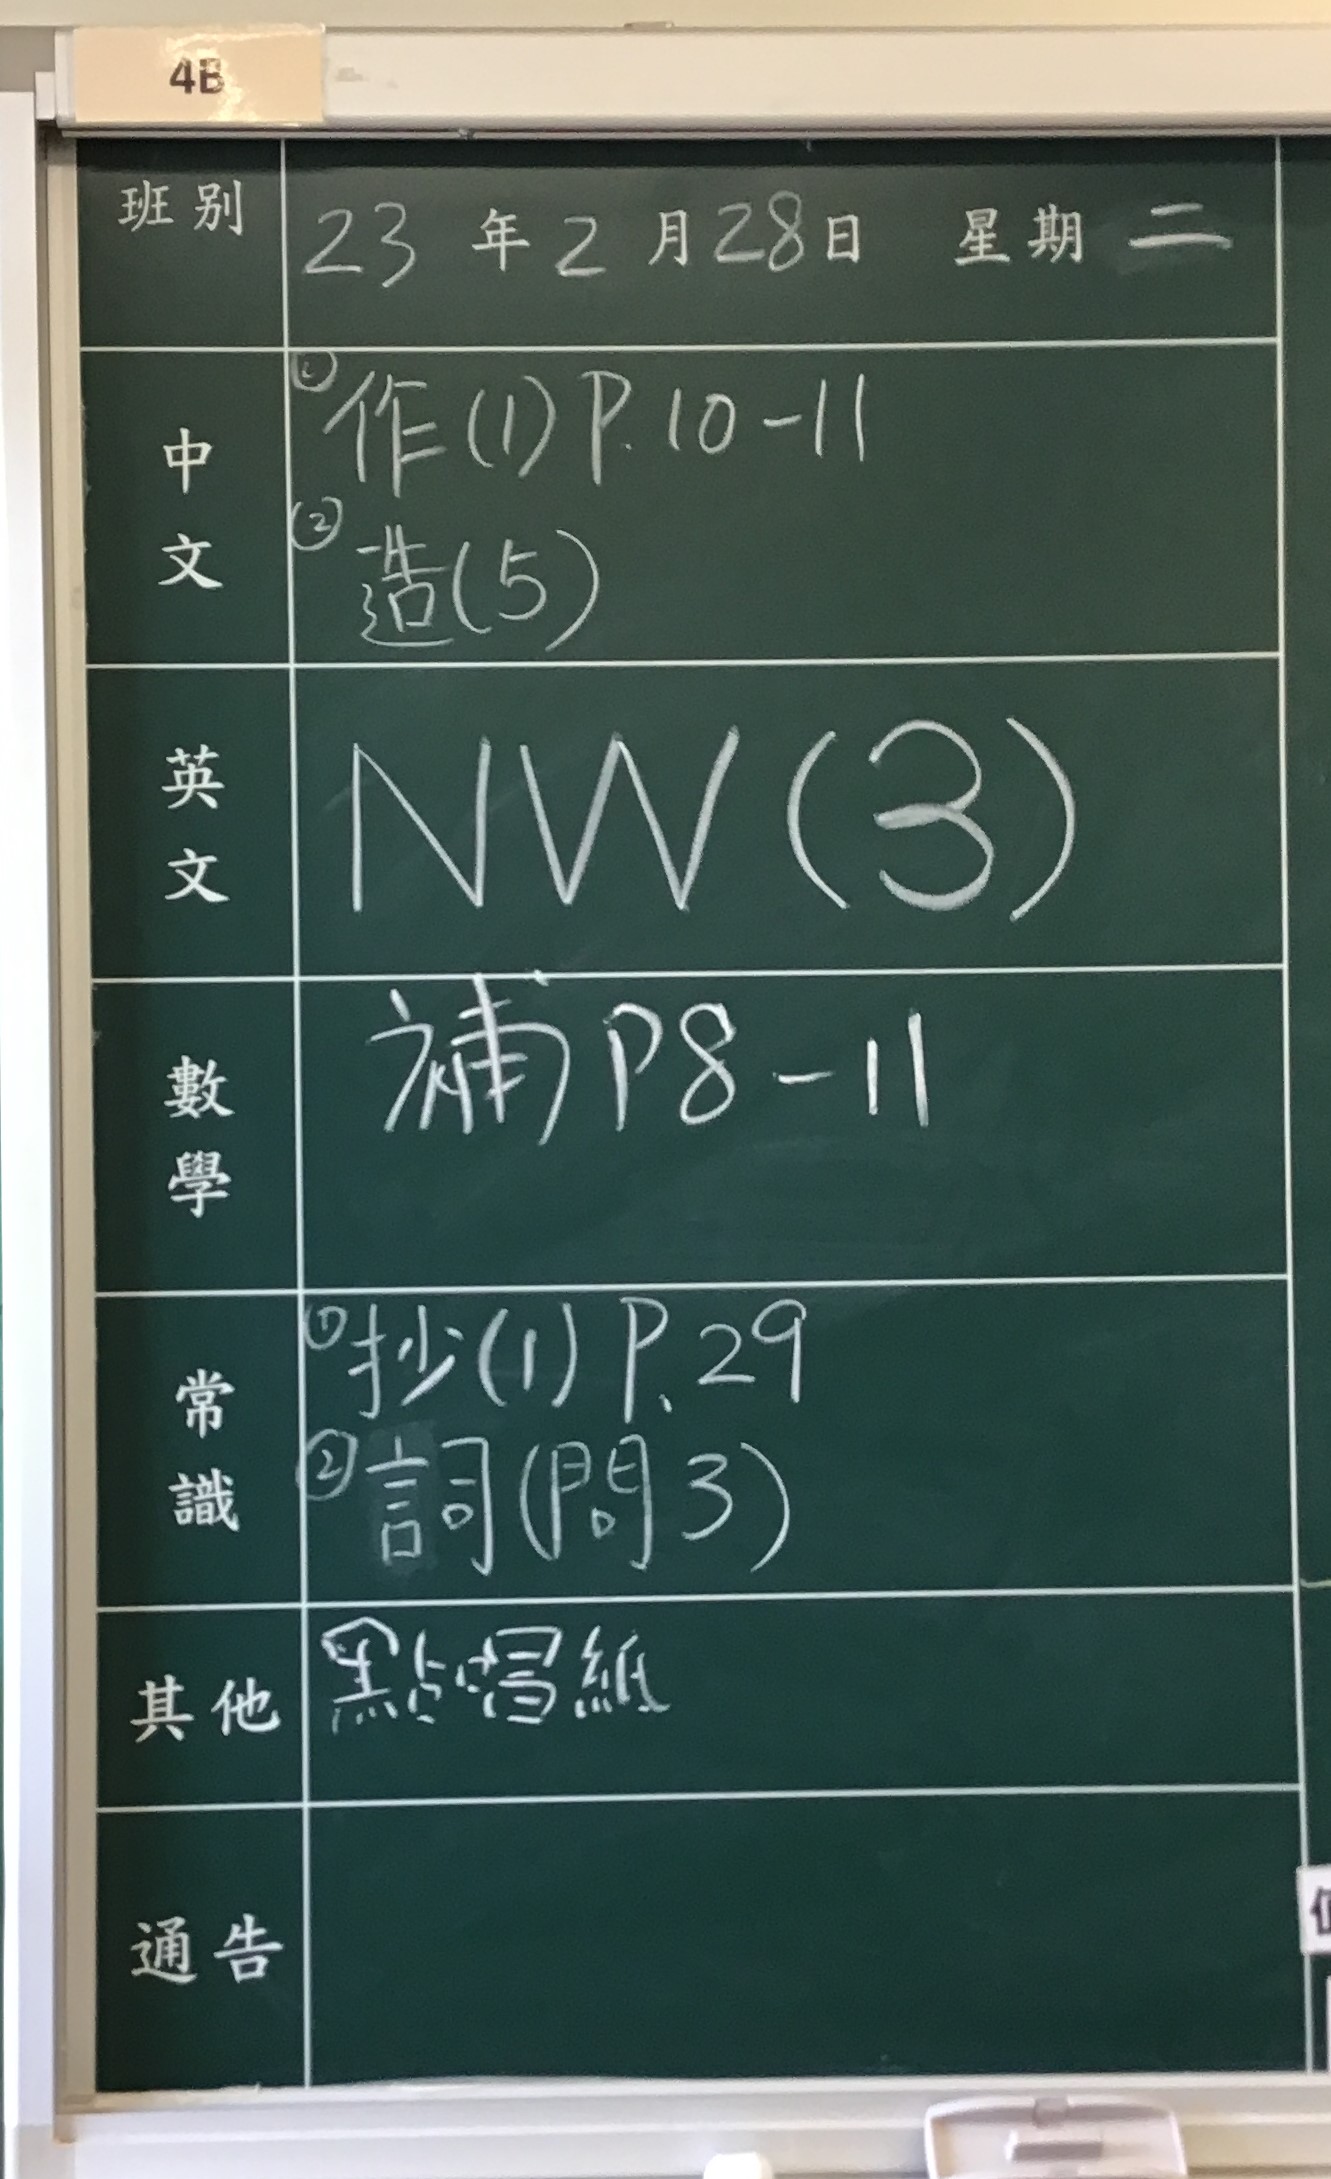 4B
班別 23年2月28日 星期二
中文 ①作(1)P.10-11
②造(5)
英文 NW(3)
數學 補P8-11
常識 ①抄(1)P.29
②詞(問3)
其他 點唱紙
通告